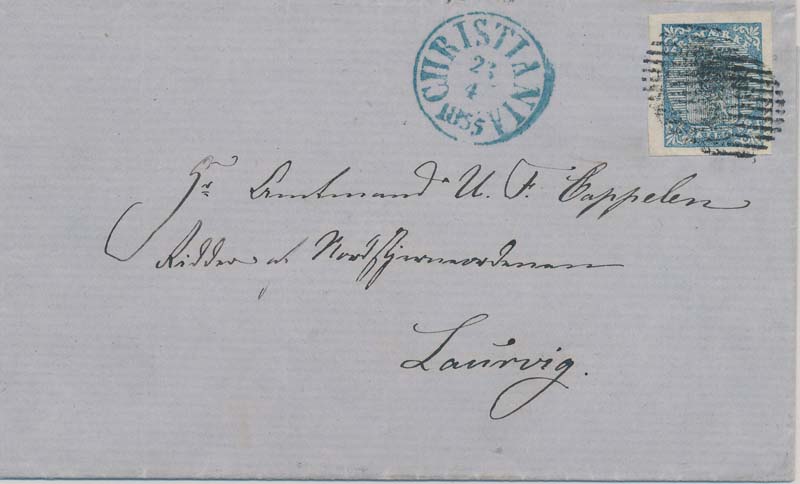 CHRISTIANIA
23
4
1855
Hr Amtmand U. F. Cappelen
Ridder af Nordstjerneordenen
Laurvig.